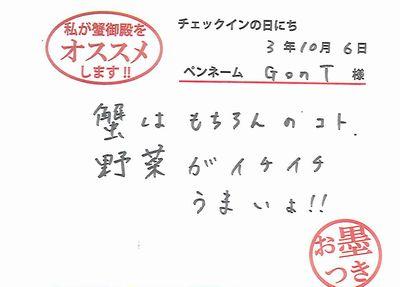 私が蟹御殿を
オススメ
します!!
チェックインの日にち
3年10月6日
ペンネーム GonT 様
蟹はもちろんのコト、
野菜がイチイチ
うまいょ!!
お墨
つき